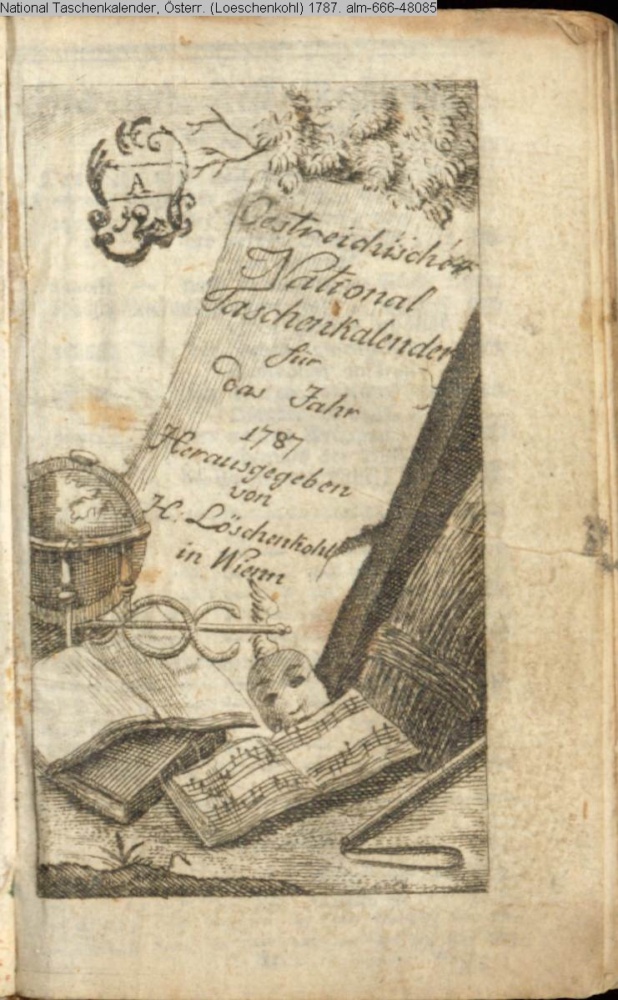 National Taschenkalender, Österr. (Loeschenkohl) 1787. alm-666-48085
A
Oestreichischer
National
Taschenkalender
für
das Jahr
1787
Herausgegeben
von
H: Löschenkohl
in Wienn